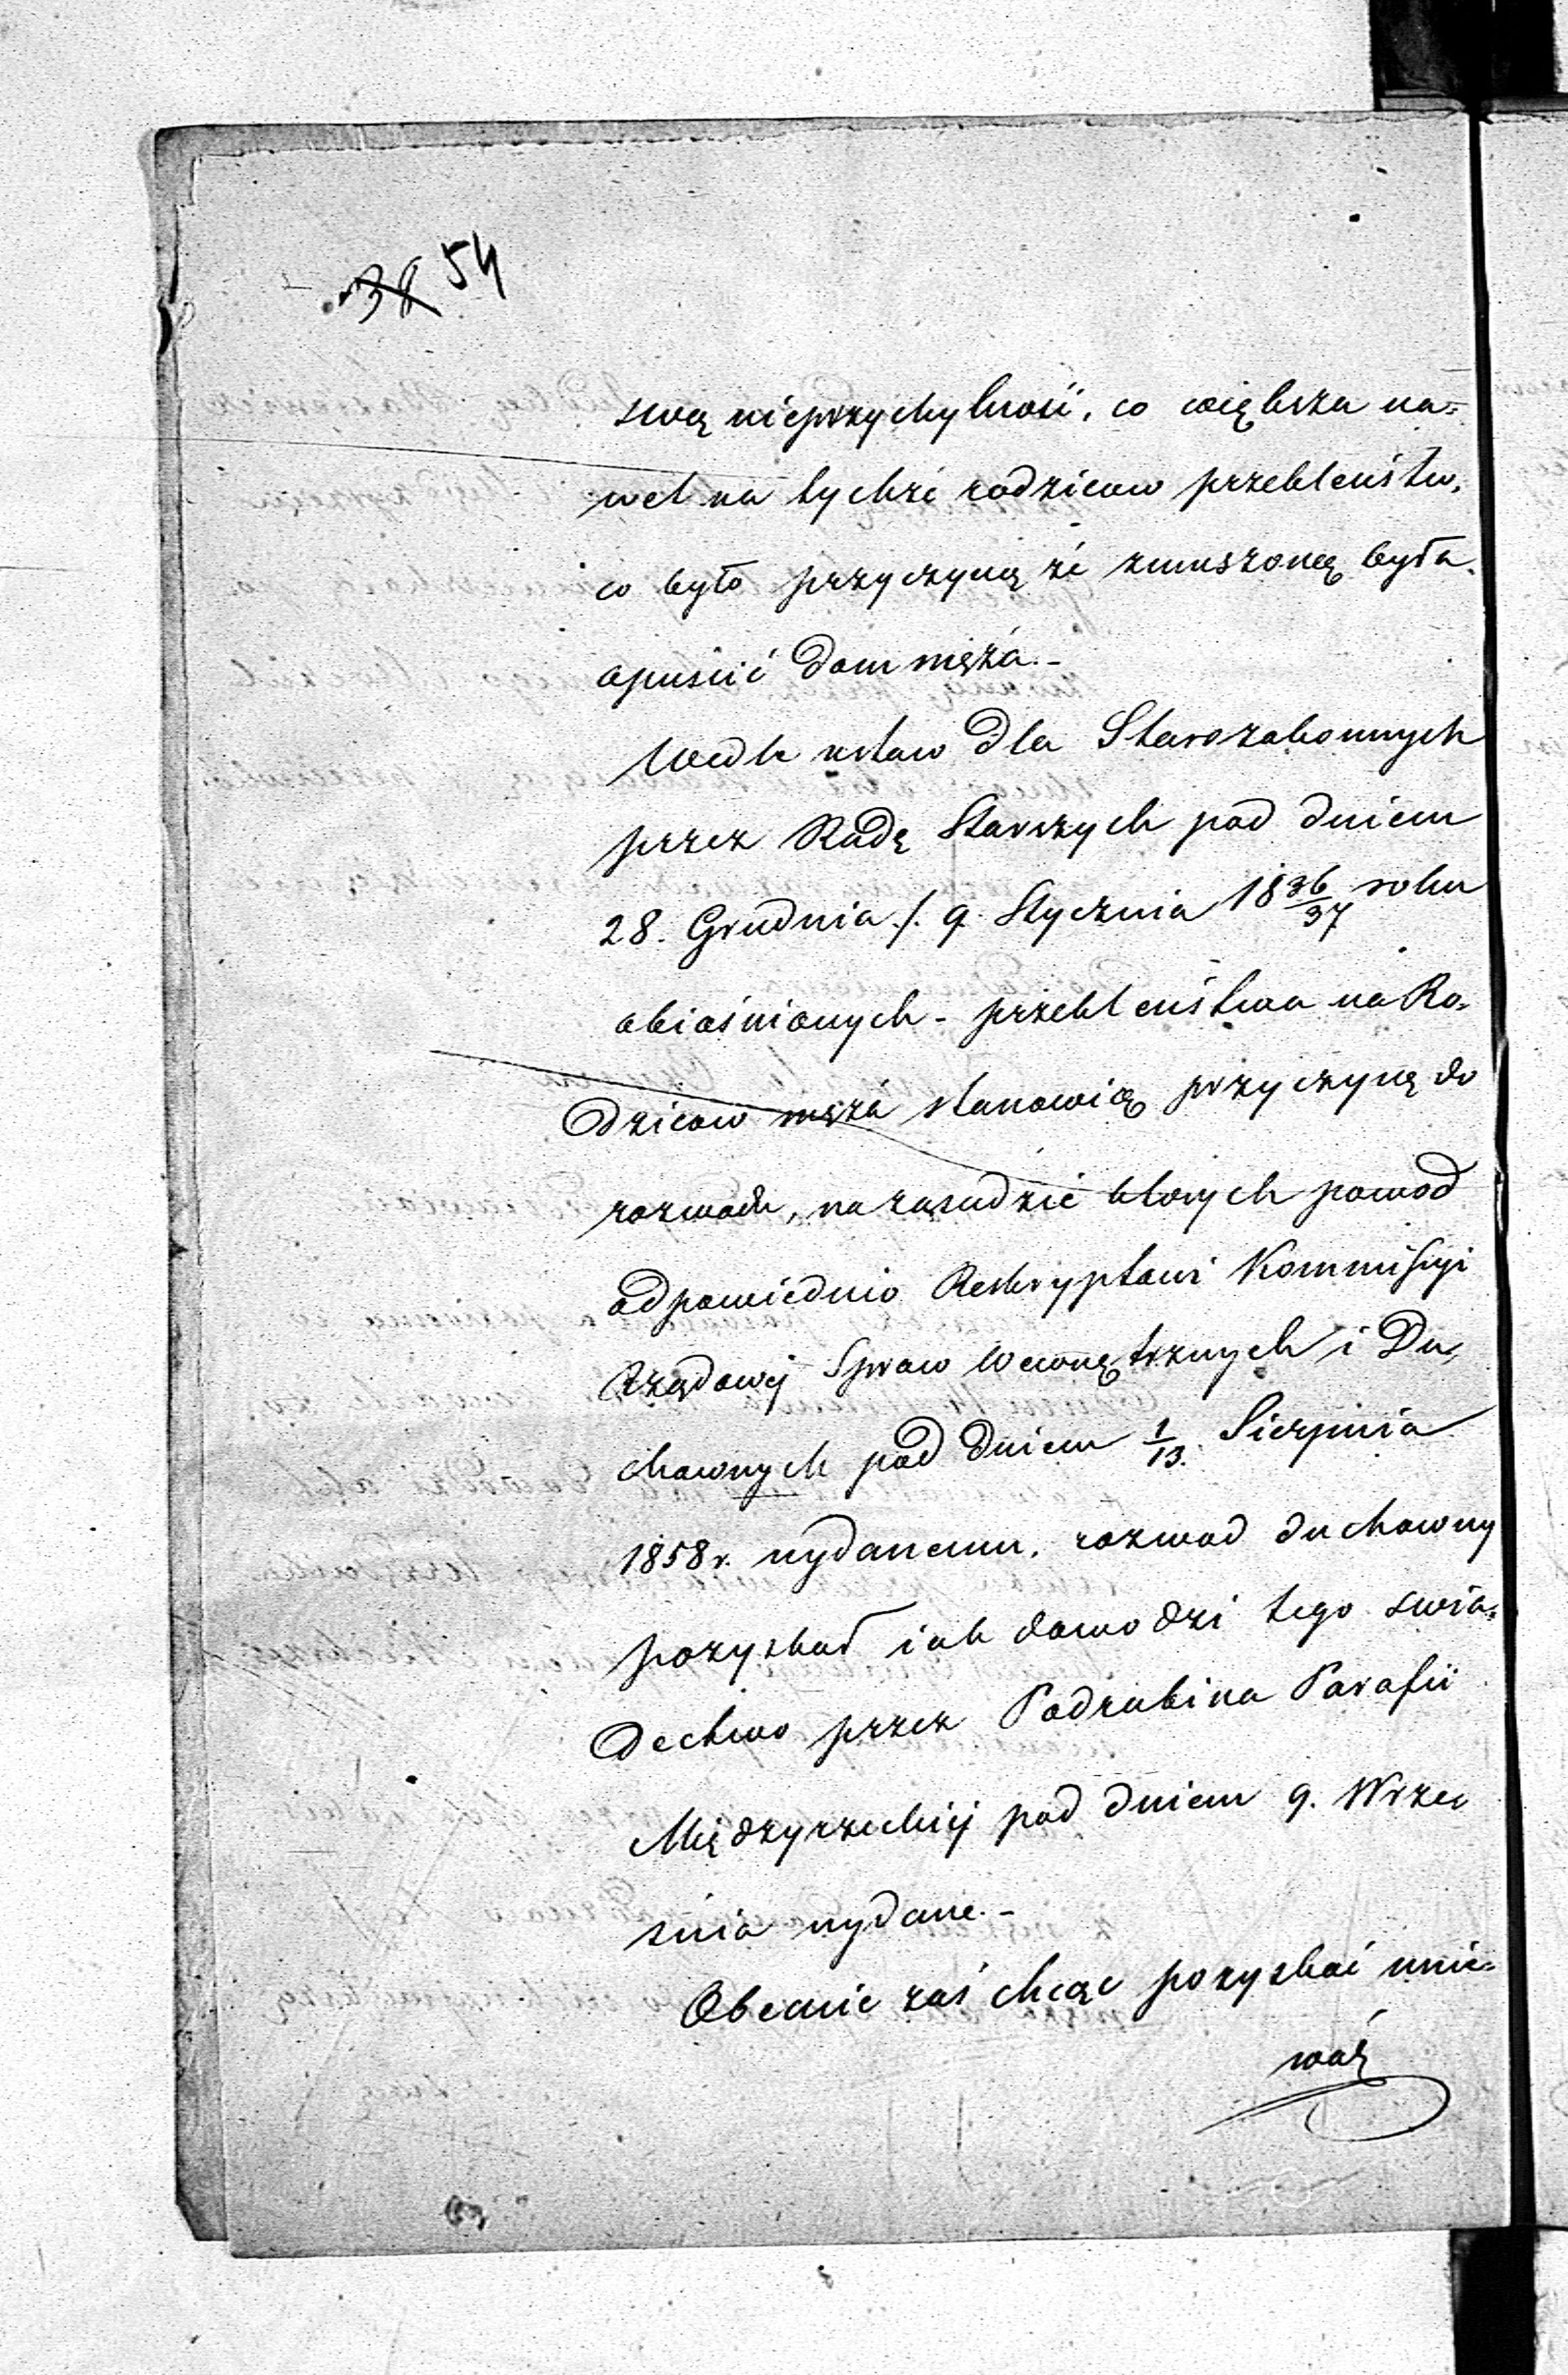 38 54
swą nieprzychylność, co większa na=
wet na tychże rodziców przeklęństw,
co było przyczyną że zmuszoną była
opuścić dom męża.-
Wedle ustaw dla Starozakonnych
przez Radę Starszych pod dniem
28. Grudnia /. 9. Stycznia 18 36/37 roku
obiaśnionych - przeklenstwa na Ro=
dziców męża stanowią przyczynę do
rozwodu, na zasadzie których powód
odpowiednio Reskryptowi Kommissyi
Rządowej Spraw Wewnętrznych i Du=
chownych pod dniem 1/13. Sierpnia
1858 r. wydanemu, rozwod duchowny
pozyskał iak dowodzi tego swia=
dectwo przez Podrabina Parafii
Międzyrzeckiej pod dniem 9. Wrze=
śnia wydane.-
Obecnie zaś chcąc pozyskać unie=